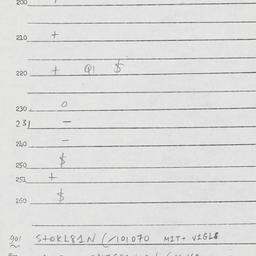 200
210 +
220 + Q1 $
230 o
231 −
240 −
250 $
251 +
260 $
901 S+OKL81N (/101070 MIT+ V1GL8